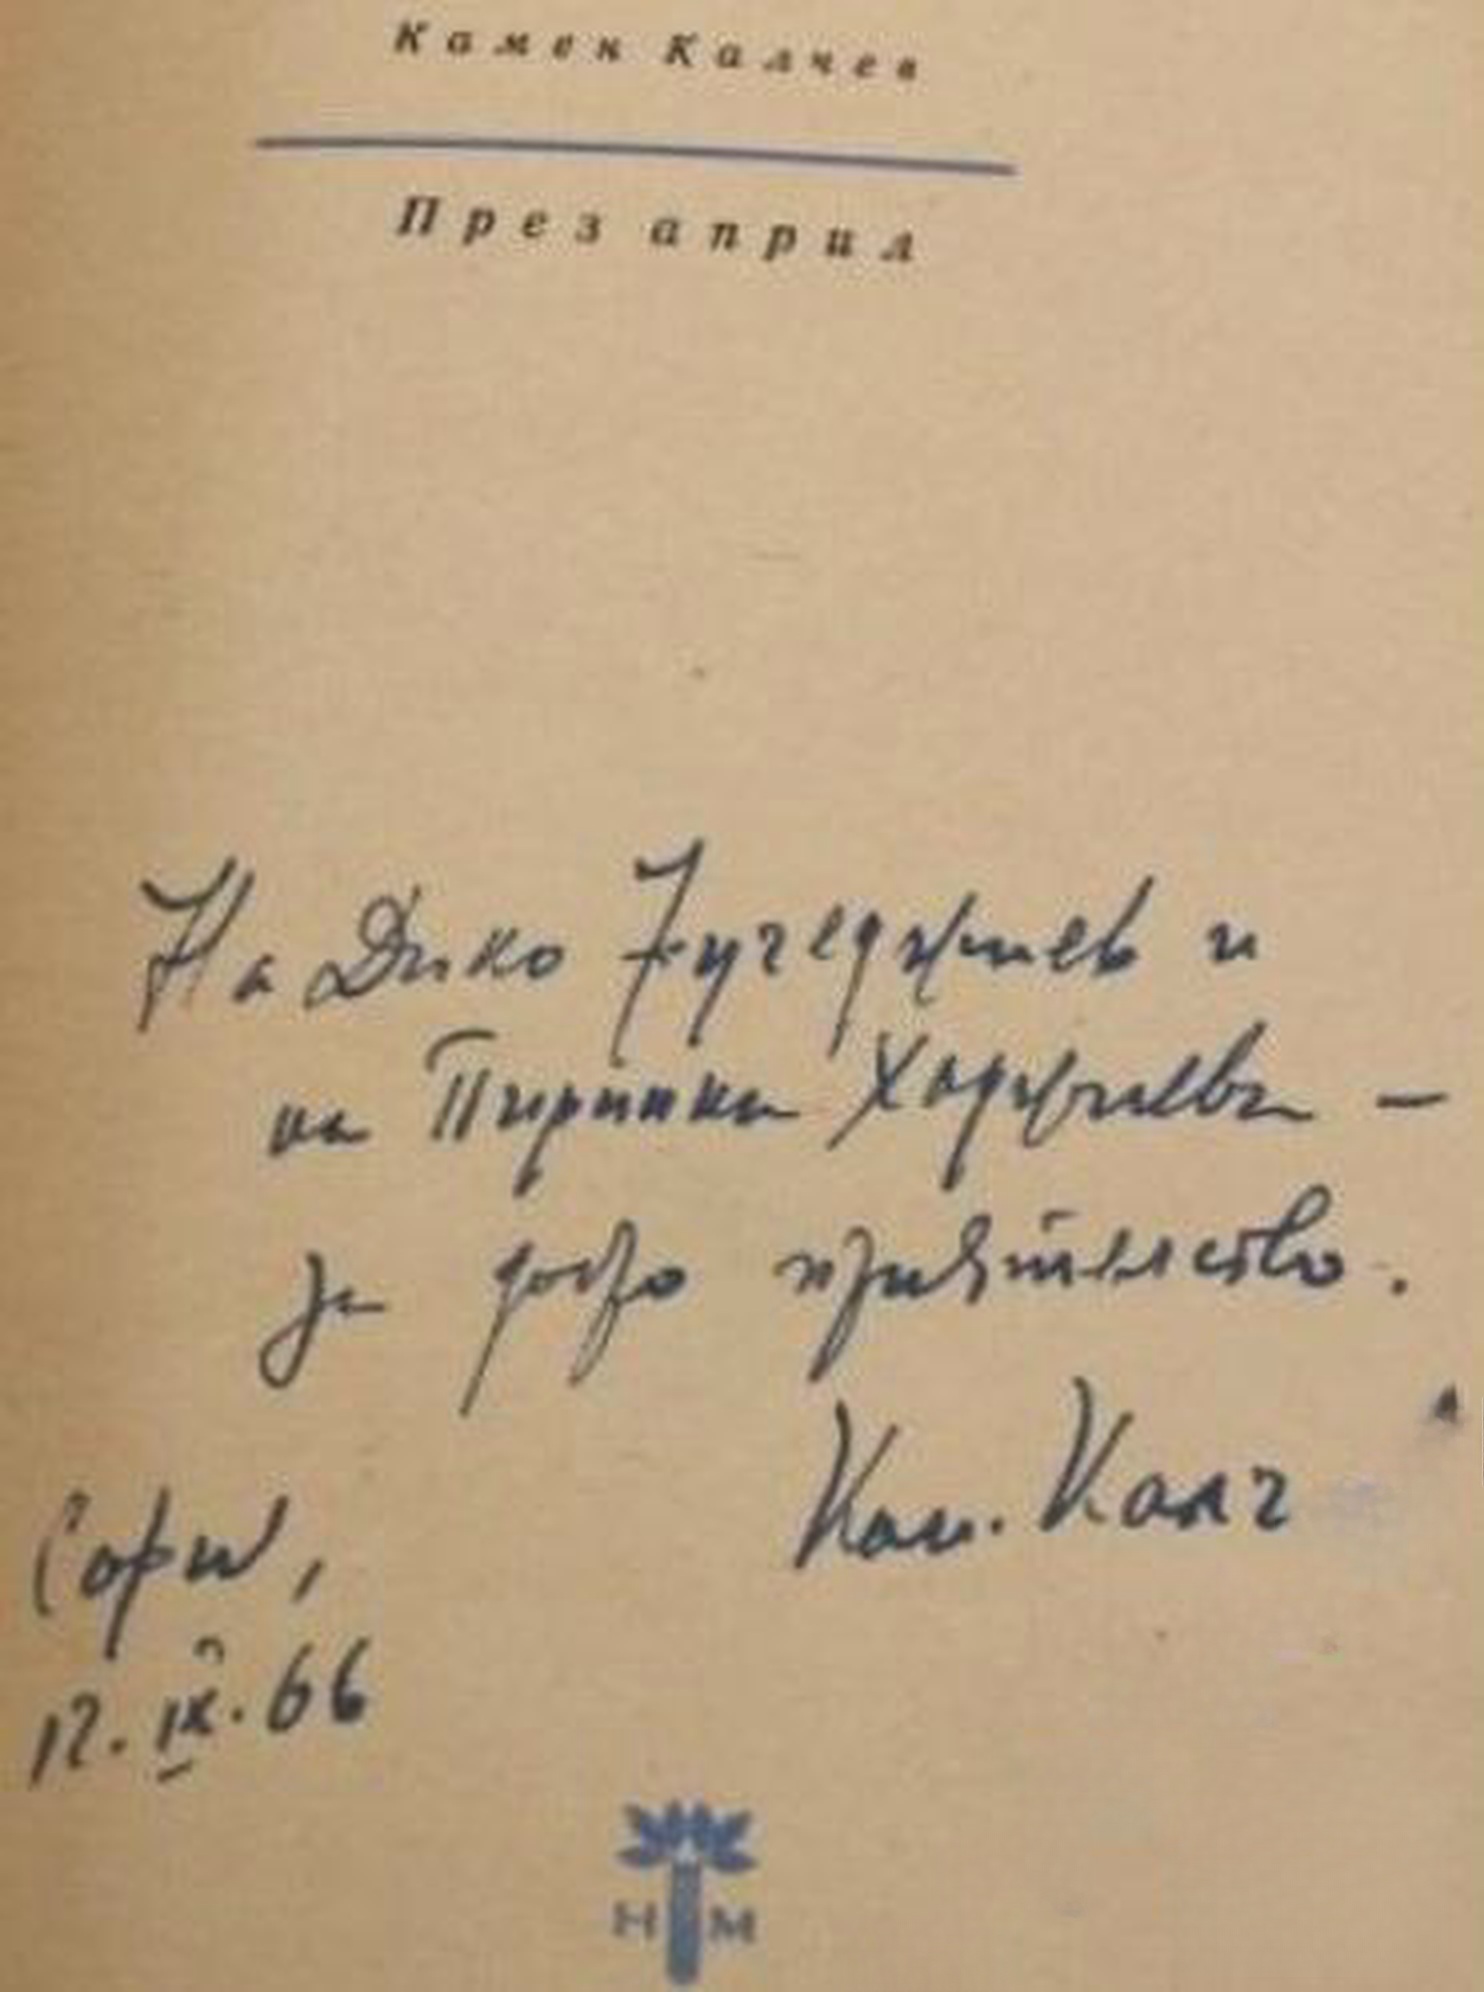 Камен Калчев
През април
На Дико Фучеджиев и
на Пиринка Хаджиева —
за добро приятелство.
Кам. Калч
София,
12. IX. 66
Н М